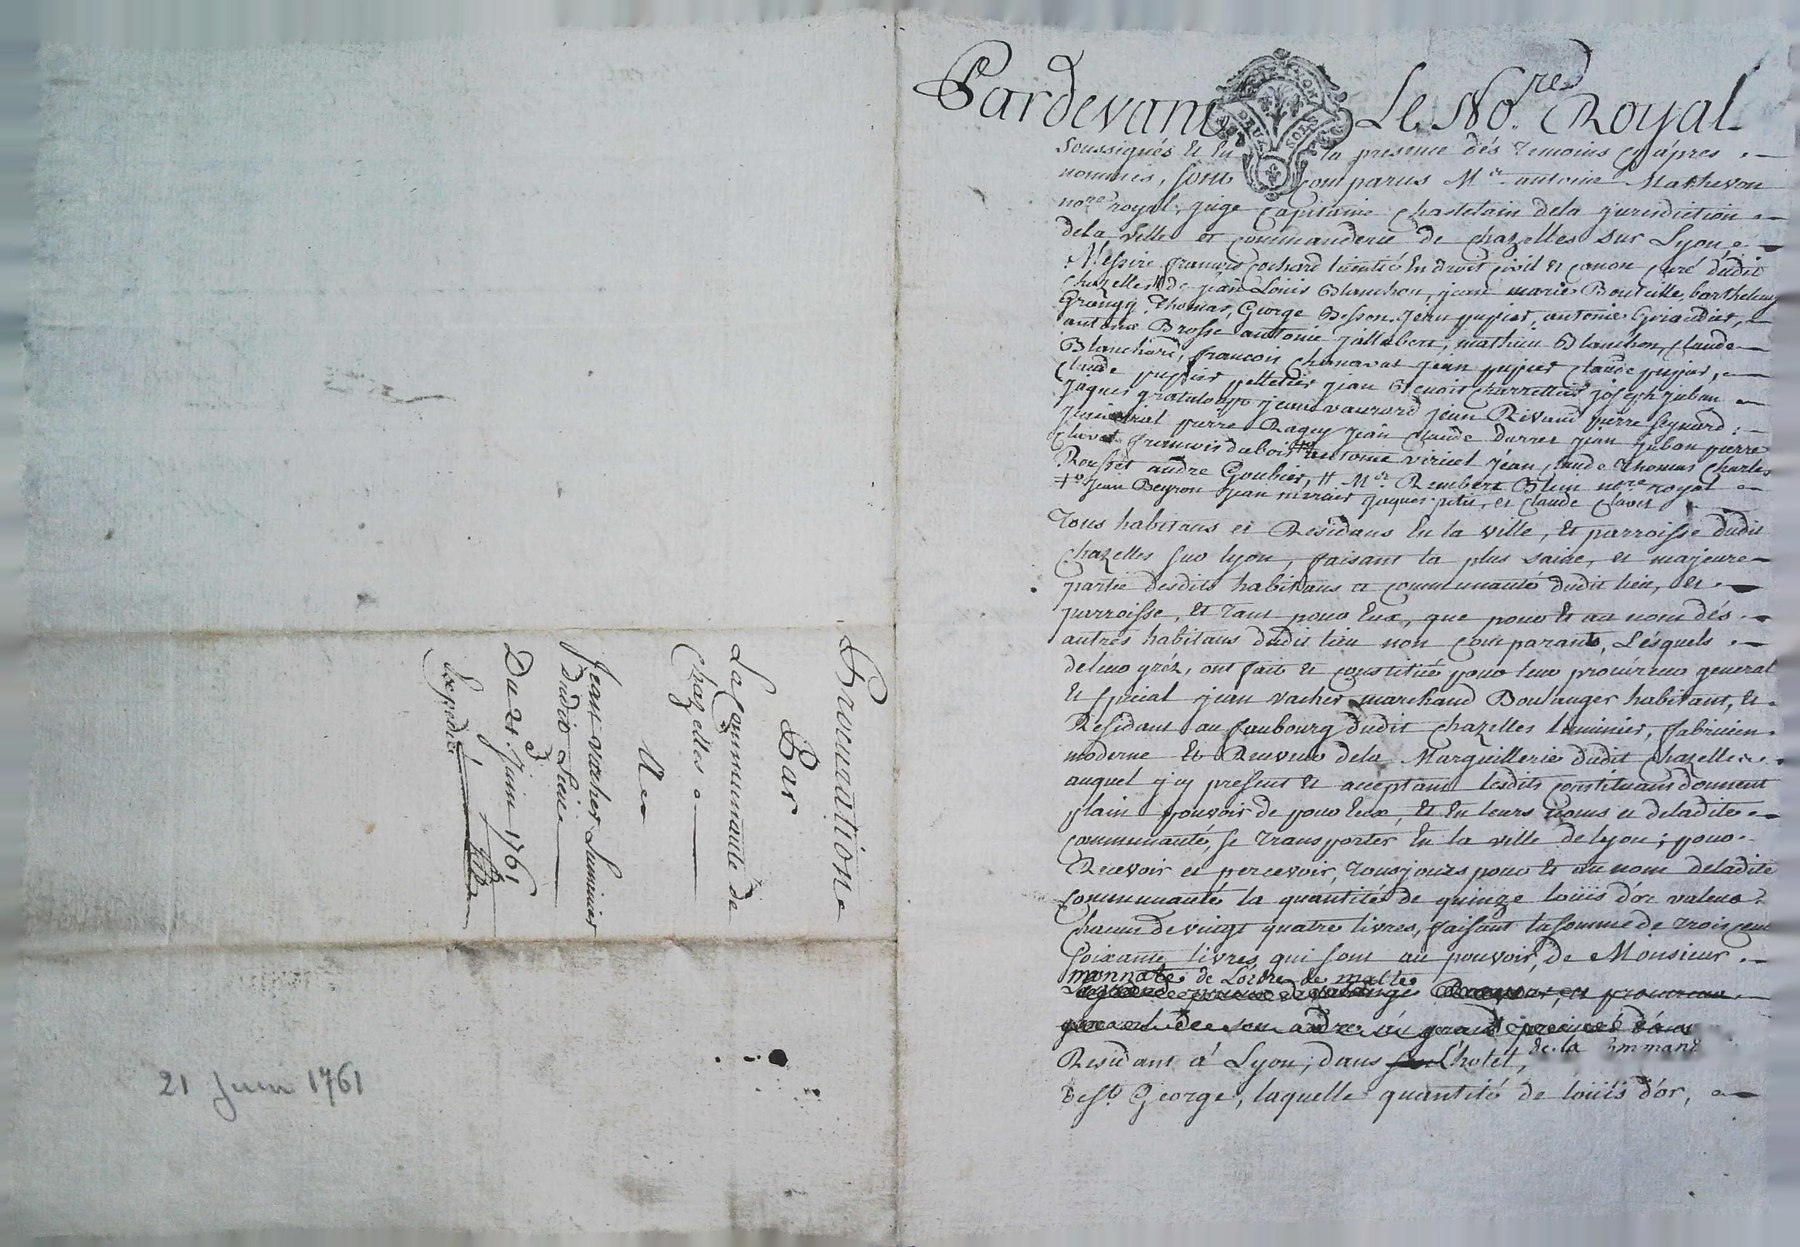 Procuration
Par
La Communauté de
Chazelles
A
Jean vacher Luminier
Dudit Lieu
Du 21 Juin 1761
Expedié
21 Juin 1761
Pardevant Le No.re Royal
Soussignés et En la presence dés temoins cy aprés
nommés, sont comparus M.r antoine Mathevon
no.re royal, juge Capitaine chastelain dela jurisdiction
dela ville et commanderie de chazelles sur Lyon
Messire francois cochard licentié En droit civil et canon curé dudit
chazelles jean Louis Blanchon, jean marie Bouteille, barthelemy
Grangy, Thomas, George Besson, Jean pupier, antoine Giraudier,
antoine Brosse antoine jallabert, mathieu Blanchon, claude
Blanchard, francois chanavat jean pupier claude pupier,
claude pupier pelletier jean Benoit charretier joseph juban
jaques grataloup jean vauzord jean Rivaud pierre seynard
pierre Ragey jean claude Durret jean juban pierre
clavet francois dubois antoine viricel jean claude Thomas charles
Rousset andre Goubier, # M.r Rembert Blein no.re royal
jean Beyron jean mercier jaques petit, et claude clavet
Tous habitans et Residans En la ville, et parroisse dudit
chazelles sur lyon, faisant la plus saine, et majeure
partie desdits habitans et communauté dudit lieu, et
parroisse, et Tant pour Eux, que pour et au nom dés
autres habitans dudit lieu non comparants, Lesquels
de leur gréz, ont fait et constitué pour leur procureur general
et special jean vacher marchand Boulanger habitant, et
Residant au faubourg dudit chazelles luminier, fabricien
moderne et Receveur dela Marguillerie dudit chazelles
auquel y cy present et acceptant lesdits constituans donnent
plain pouvoir de pour Eux, et En leurs noms et deladite
communauté, se transporter En la ville de lyon; pour
Recevoir et percevoir, tousjours pour et au nom deladite
communauté la quantité de quinze louis d'or valeur
chacun de vingt quatre livres, faisant la somme de trois cent
soixante livres, qui sont au pouvoir, de Monsieur
monnate de L'ordre de malte
Residant a Lyon, dans L'hotel, de la
de S.t George, laquelle quantité de louis d'or,